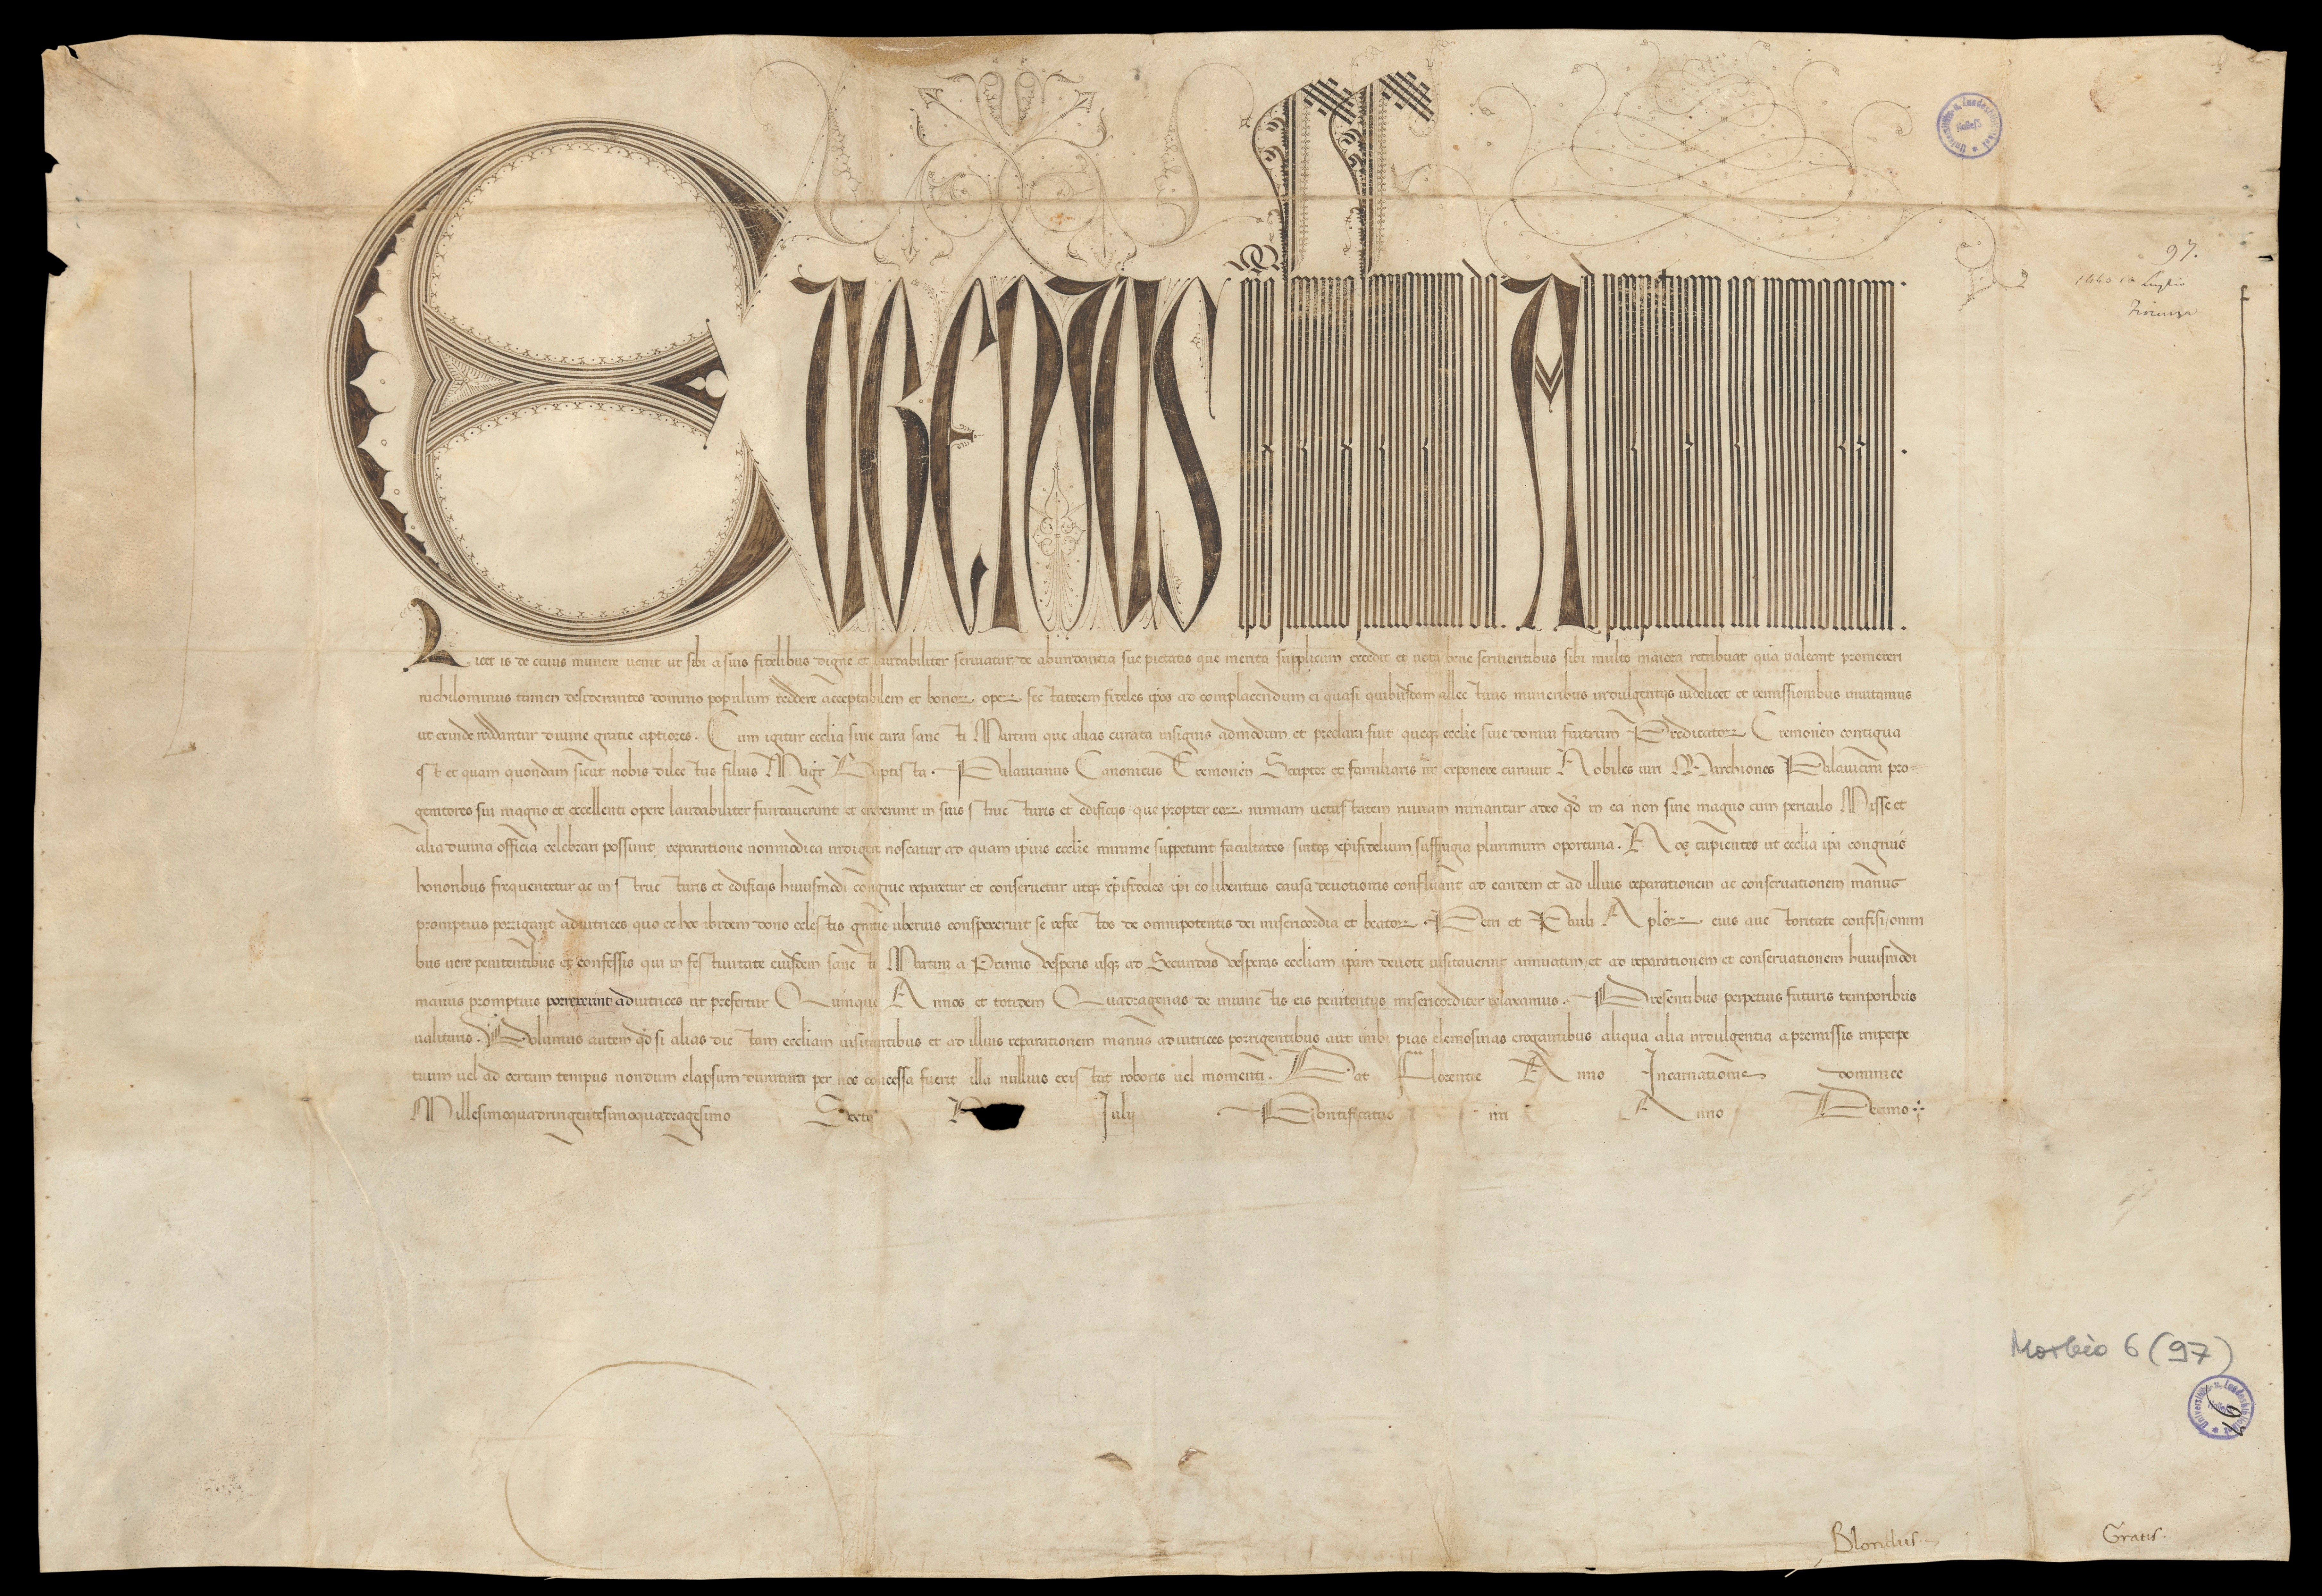 Eugenius ep̄s seruus seruorum dei Ad perpetuam rei memoriam.
Licet is de cuius munere uenit ut sibi a suis fidelibus digne et laudabiliter seruiatur de abundantia sue pietatis que merita supplicum excedit et uota bene seruientibus sibi multo maiora retribuat quā ualeant promereri
nichilominus tamen desiderantes domino populum reddere acceptabilem et bonoꝝ opeꝝ sectatorem fideles ip̄os ad complacendum ei quasi quibusdam allectiuis muneribus indulgentijs uidelicet et remissionibus inuitamus
ut exinde reddantur diuine gratie aptiores. Cum igitur ecclia sine cura sancti Martini que alias curata insignis admodum et preclara fuit queqꝫ ecclie siue domui fratrum Predicatoꝝ Cremonen̄ contigua
est et quam quondam sicut nobis dilectus filius Magr̄ Baptista Palauicinus Canonicus Cremonen̄ Scriptor et familiaris nr̄ exponere curauit Nobiles uiri Marchiones Palauicini pro-
genitores sui magno et excellenti opere laudabiliter fundauerunt et erexerunt in suis structuris et edificijs que propter eoꝝ nimiam uetustatem ruinam minantur adeo qd̄ in ea non sine magno cum periculo Misse et
alia diuina officia celebrari possunt reparatione nonmodica indigere noscatur ad quam ip̄ius ecclie minime suppetunt facultates sintqꝫ xp̄ifidelium suffragia plurimum oportuna. Nos cupientes ut ecclia ip̄a congruis
honoribus frequentetur ac in structuris et edificijs huiusmodi congrue reparetur et conseruetur utqꝫ xp̄ifideles ip̄i eo libentius causa deuotionis confluant ad eandem et ad illius reparationem ac conseruationem manus
promptius porrigant adiutrices quo ex hoc ibidem dono celestis gratie uberius conspexerint se refectos de omnipotentis dei misericordia et beatoꝝ Petri et Pauli Aploꝝ eius auctoritate confisi omni
bus uere penitentibus et confessis qui in festiuitate eiusdem sancti Martini a Primis uesperis usqꝫ ad Secundas uesperas eccliam ip̄am deuote uisitauerint annuatim et ad reparationem et conseruationem huiusmodi
manus promptius porrexerint adiutrices ut prefertur Quinque Annos et totidem Quadragenas de iniunctis eis penitentijs misericorditer relaxamus. Presentibus perpetuis futuris temporibus
ualituris. Volumus autem qd̄ si alias dictam eccliam uisitantibus et ad illius reparationem manus adiutrices porrigentibus aut inibi pias elemosinas erogantibus aliqua alia indulgentia a premissis imperpe
tuum uel ad certum tempus nondum elapsum duratura per nos concessa fuerit illa nullius existat roboris uel momenti. Dat Florentie Anno Incarnationis dominice
Millesimoquadringentesimoquadragesimo Sexto Julij Pontificatus nr̄i Anno Decimo
97.
Luglio
Firenze
Universitäts- u. Landesbibliothek
Morbio 6 (97)
Universitäts- u. Landesbibliothek
97
Blondus. Gratis.